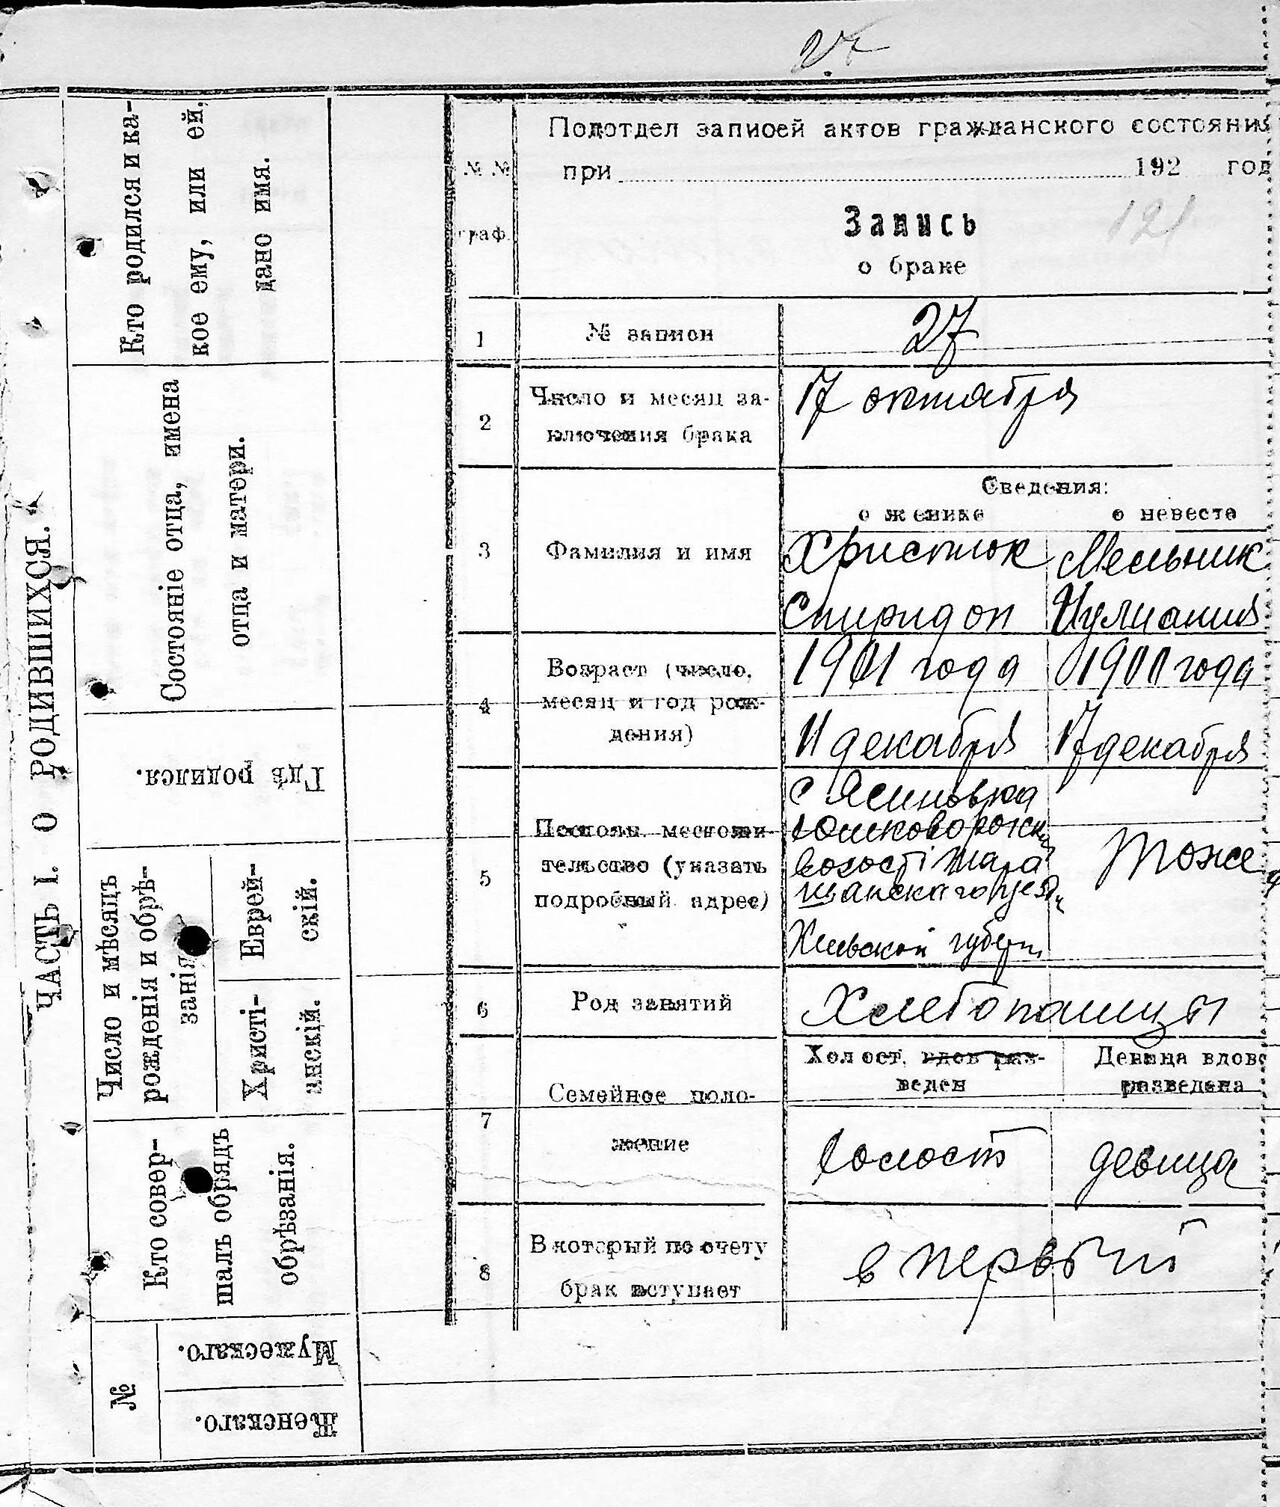 27
ЧАСТЬ I. О РОДИВШИХСЯ.
Кто родился и ка-
кое ему, или ей,
дано имя.
Состояніе отца, имена
отца и матери.
Гдѣ родился.
Число и мѣсяцъ
рожденія и обрѣ-
занія
Еврей-
скій.
Христі-
анскій.
Кто совер-
шалъ обрядъ
обрѣзанія.
№
Мужескаго.
Женскаго.
№ №
граф.
Подотдел записей актов гражданского состояния
при 192 год
Запись
121
о браке
1
№ записи
27
2
Число и месяц за-
ключения брака
17 октября
Сведения:
о женихе
о невесте
3
Фамилия и имя
Христюк
Спиридон
Мельник
Иулиания
4
Возраст (число,
месяц и год рож-
дения)
1901 года
11 декабря
1900 года
17 декабря
5
Постоян. местожи-
тельство (указать
подробный адрес)
с Ясиновка
волості Тара
щанскаго уезд
Киевской губерн
Тоже
6
Род занятий
Хлебопашцы
7
Семейное поло-
жение
Холост, вдов раз-
веден
Девица вдов
разведена
холост
девица
8
В который по счету
брак вступает
в первый